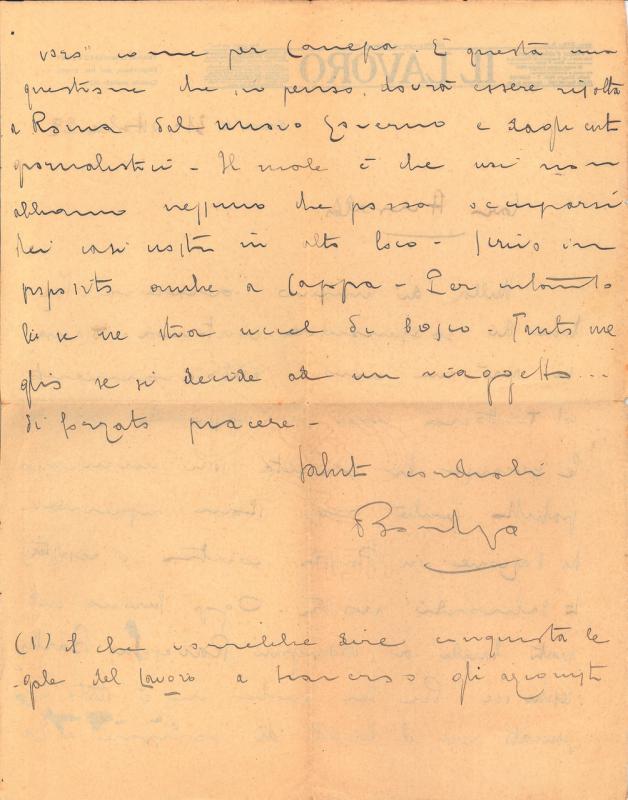 come per Canepa. E questa una
questione che, io penso, dovrà essere risolta
a Roma dal nuovo Governo e dagli enti
giornalistici - Il male è che noi non
abbiamo nessuno che possa occuparsi
dei casi nostri in alto loco - Scrivo in
proposito anche a Cappa - Per intanto
lui se ne stia uccel di bosco - Tanto me
glio se si decide ad un viaggetto...
di forzato piacere -
Saluti cordiali
(1) il che vorrebbe dire conquista le
gale del Lavoro a traverso gli azionisti